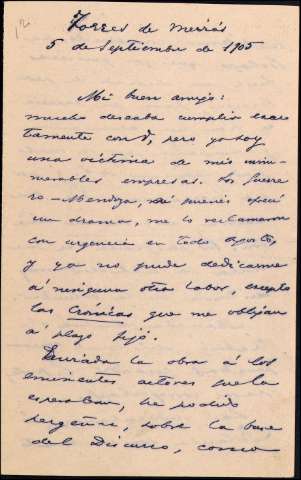 Torres de Meirás
5 de Septiembre de 1905
Mi buen amigo:
mucho deseaba cumplir exac
tamente con V, pero yo soy
una víctima de mis innu-
merables empresas. Los Guerre
ro-Mendoza, á quienes ofrecí
un drama, me lo reclamaron
con urgencia en todo Agosto,
y ya no pude dedicarme
á ninguna otra labor, excepto
las Crónicas que me obligan
á plazo fijo.
Enviada la obra á los
eminentes actores que la
esperaban, he podido
pergeñar, sobre la base
del Discurso, como